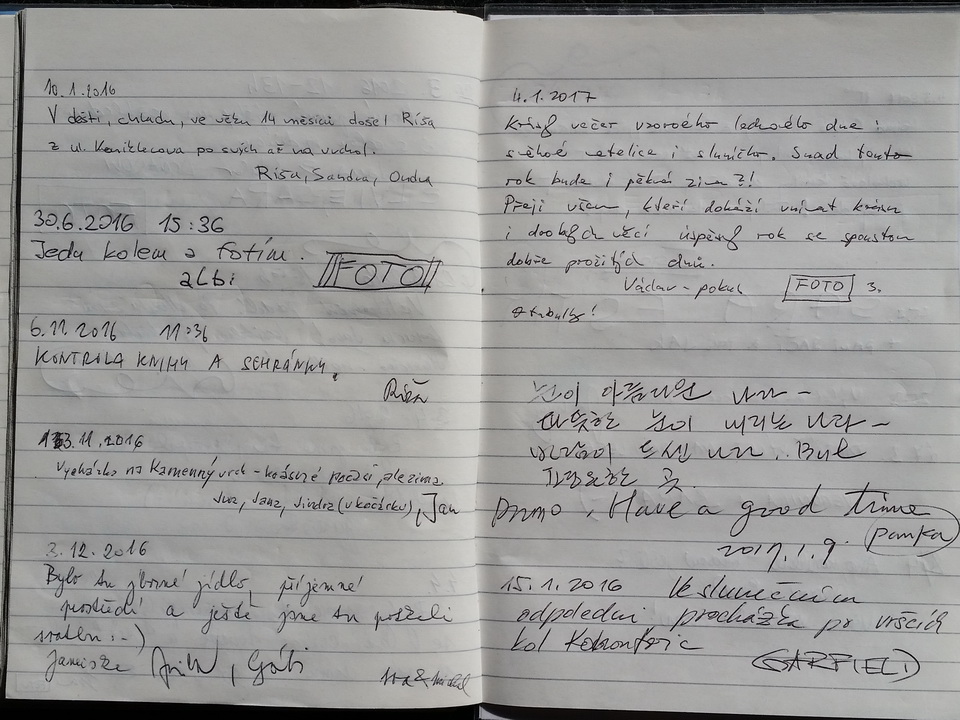 10.1.2016
V dešti, chladu, ve věku 14 měsíců došel Ríša
z ul. po svých až na vrchol.
Ríša, Sandra, Ondra
30.6.2016 15:36
Jedu kolem a fotím.
albi FOTO
6.11.2016 11:36
KONTROLA KNIHY A SCHRÁNKY.
13.11.2016
Vycházka na Kamenný vrch - krásné počasí, ale zima.
Iva, Jana, Jindra (v kočárku), Jan
3.12.2016
Bylo tu jídlo, příjemné
prostředí a ještě jsme tu potkali
:-)
, Gábi
4.1.2017
večer vzorového lednového dne:
sněhové metelice i sluníčko. Snad tento
rok bude i pěkná zima?!
Přeji všem, kteří dokáží vnímat krásu
i drobných věcí úspěšný rok se spoustou
dobře prožitých dnů.
Václav - FOTO 3.
눈이 아름다운 나라 ~
따뜻한 눈이 내리는 나라 ~
바람이 드센 나라. But
곳.
, Have a good time
2017.1.9. panka
15.1.2016 Ve slunečním
odpoledni procházka po vršcích
kol
GARFIELD